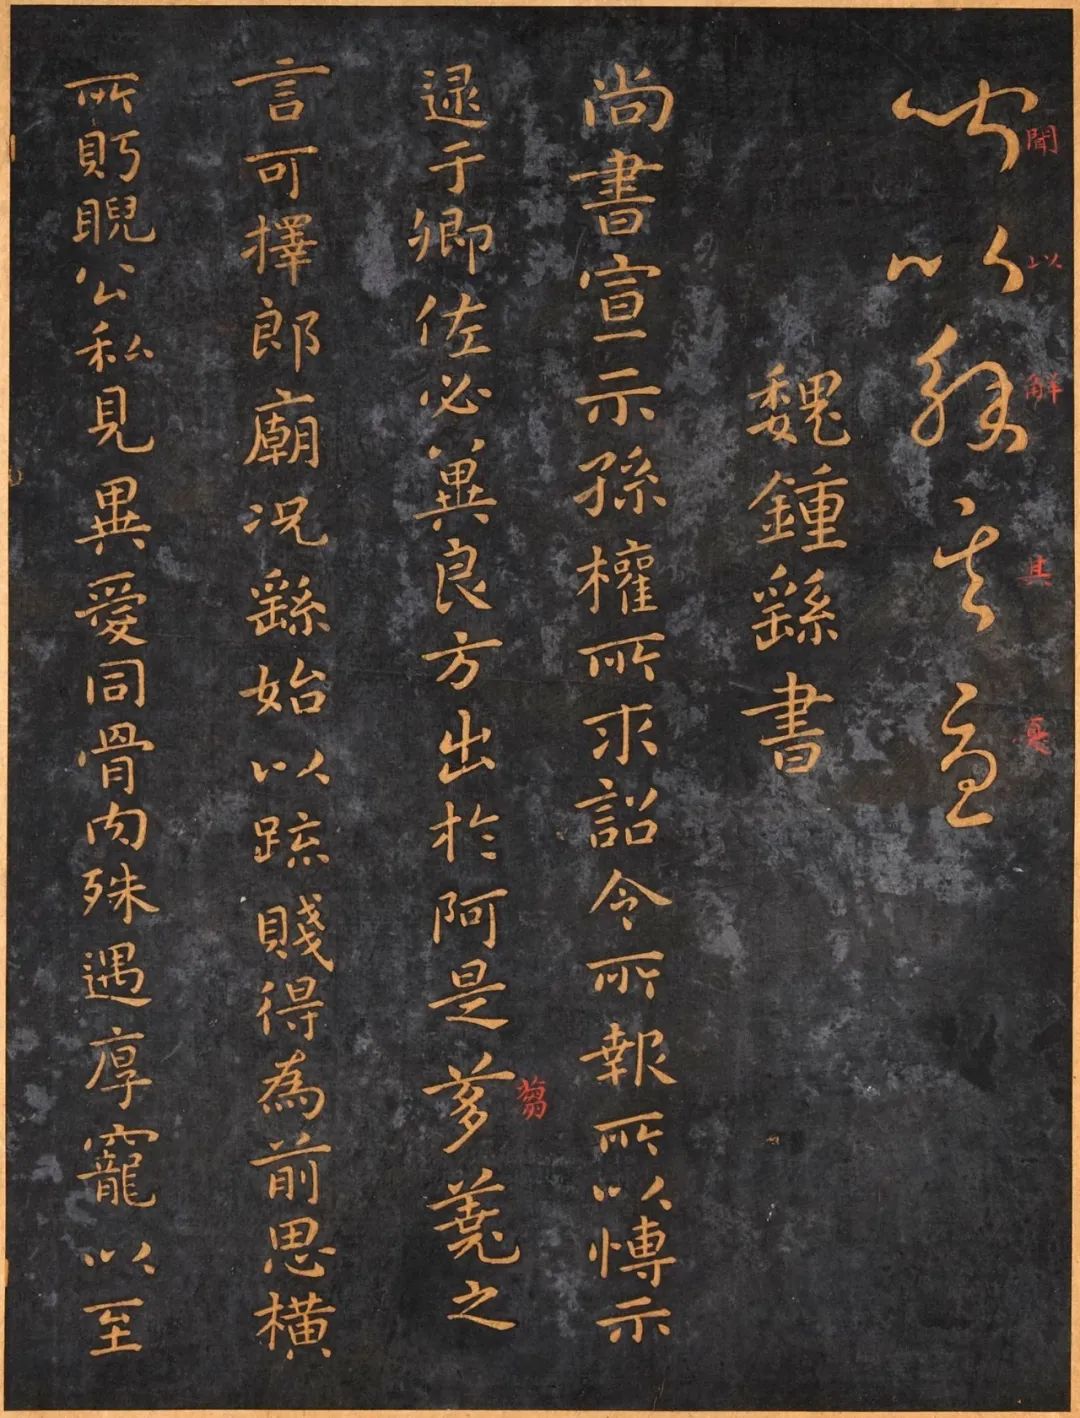 聞以解其憂
聞以解其憂
魏鍾繇書
尚書宣示孫權所求詔令所報所以博示
逮于卿佐必冀良方出於阿是芻蕘之
芻
言可擇郎廟況繇始以疏賤得為前恩橫
所眄睨公私見異愛同骨肉殊遇厚寵以至